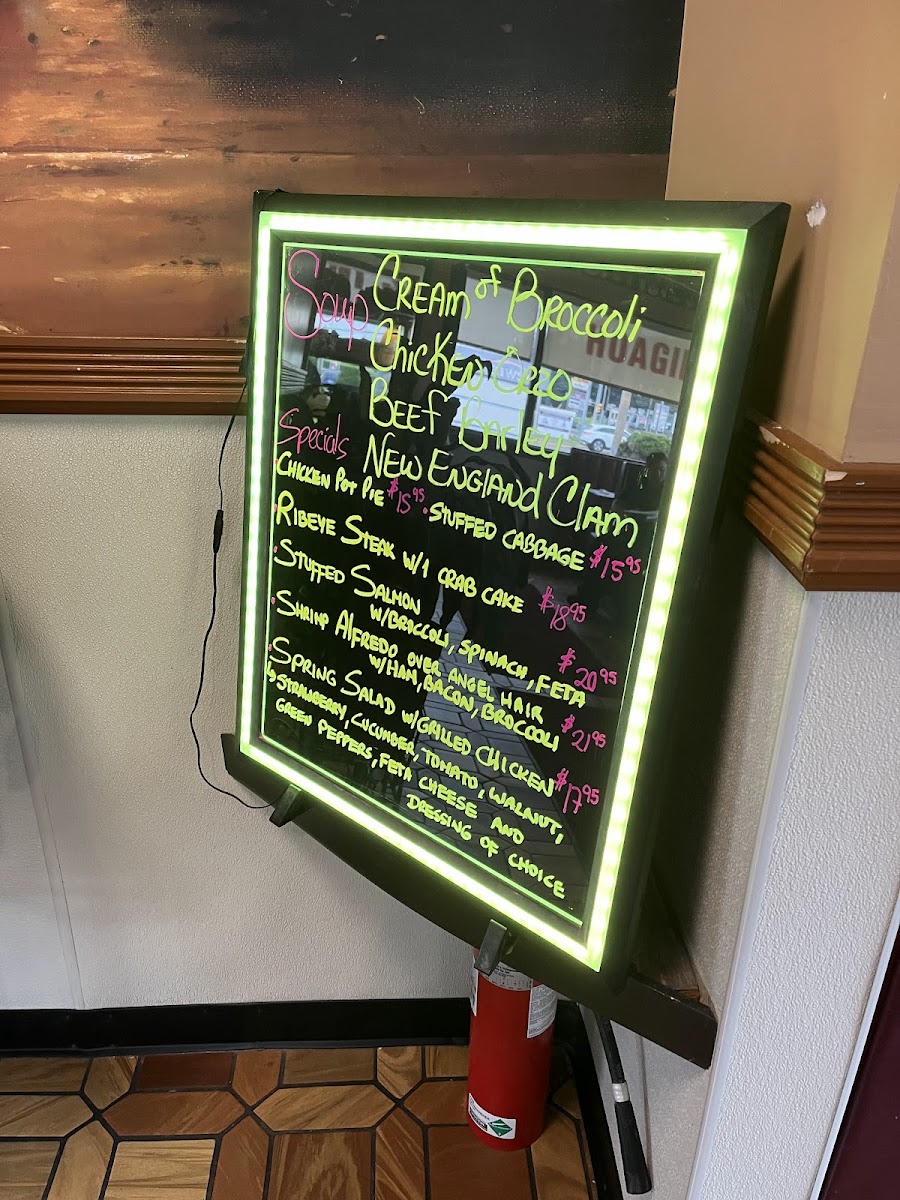 Soup CREAM of BROCCOLI
CHICKEN ORZO
BEEF BARLEY
NEW ENGLAND CLAM
Specials
• CHICKEN POT PIE $15.95 • STUFFED CABBAGE $15.95
• RIBEYE STEAK W/1 CRAB CAKE $18.95
• STUFFED SALMON
W/BROCCOLI, SPINACH, FETA $20.95
• SHRIMP ALFREDO OVER ANGEL HAIR
W/HAM, BACON, BROCCOLI $21.95
• SPRING SALAD W/GRILLED CHICKEN $17.95
↳ STRAWBERRY, CUCUMBER, TOMATO, WALNUT,
GREEN PEPPERS, FETA CHEESE AND
DRESSING OF CHOICE